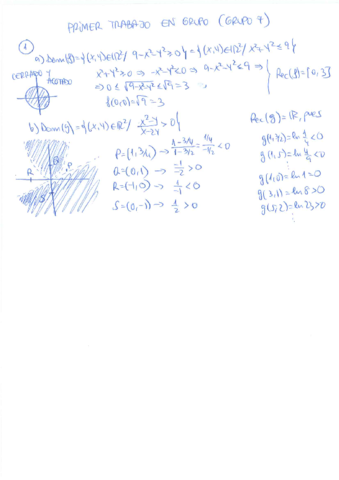 PRIMER TRABAJO EN GRUPO (GRUPO 7)
1
a) Dom(f)={(x,y)∈ℝ²/ 9-x²-y²≥0}={(x,y)∈ℝ²/ x²+y²≤9}
CERRADO Y ACOTADO
x²+y²≥0 ⇒ -x²-y²≤0 ⇒ 9-x²-y²≤9 ⇒
Rec(f)=[0,3]
⇒ 0≤√9-x²-y²≤√9=3
f(0,0)=√9=3
b) Dom(g)={(x,y)∈ℝ²/ x²-y/x-2y >0}
Rec(g)=ℝ, pues
P=(1,3/4) → 1-3/4/1-3/2 = 1/4/-1/2 <0
Q=(0,1) → -1/-2 >0
R=(-1,0) → 1/-1 <0
S=(0,-1) → 1/2 >0
g(1,0)=ln 1=0
g(3,1)=ln 8>0
g(5,2)=ln 23>0
R
Q
P
S